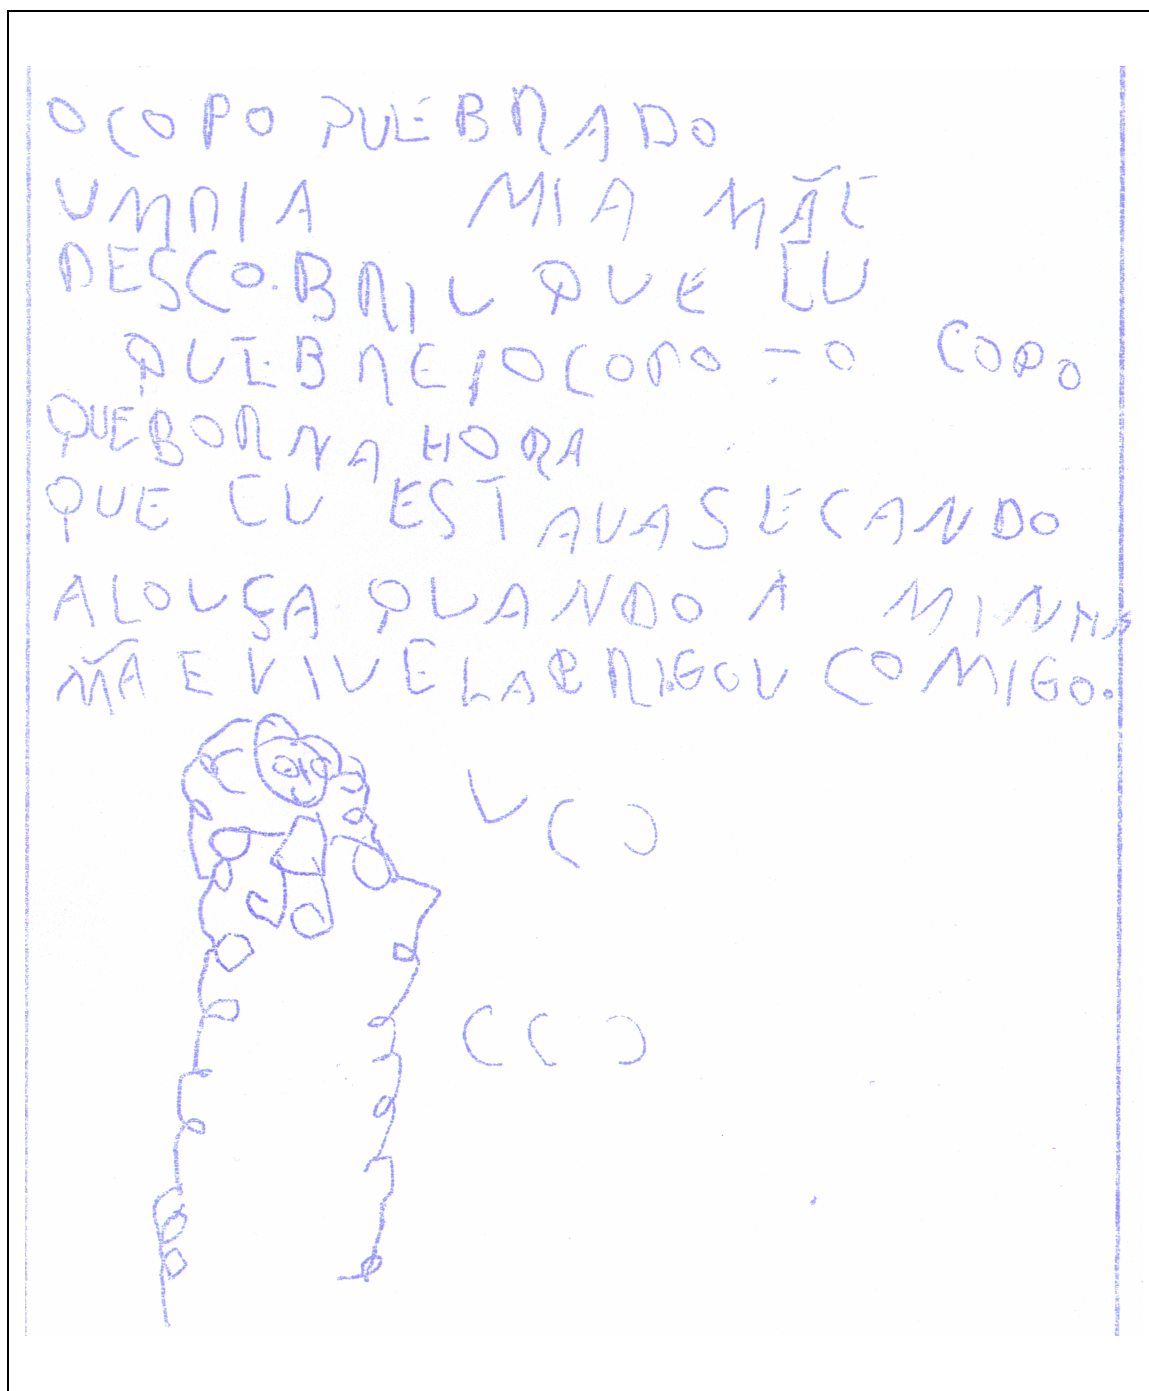 O COPO QUEBRADO
UMDIA MIA MÃE
DESCO.BRIU QUE EU
QUEBREIOCOPO - O COPO
QUEBOR NA HORA
QUE EU ESTAVASECANDO
ALOUÇA QUANDO A MINHA
MÃE VIU ELABRIGOU COMIGO.